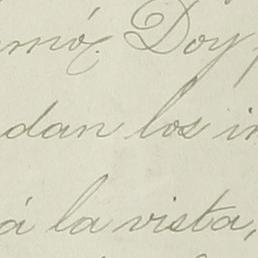 mó. Doy
dan los in
á la vista,